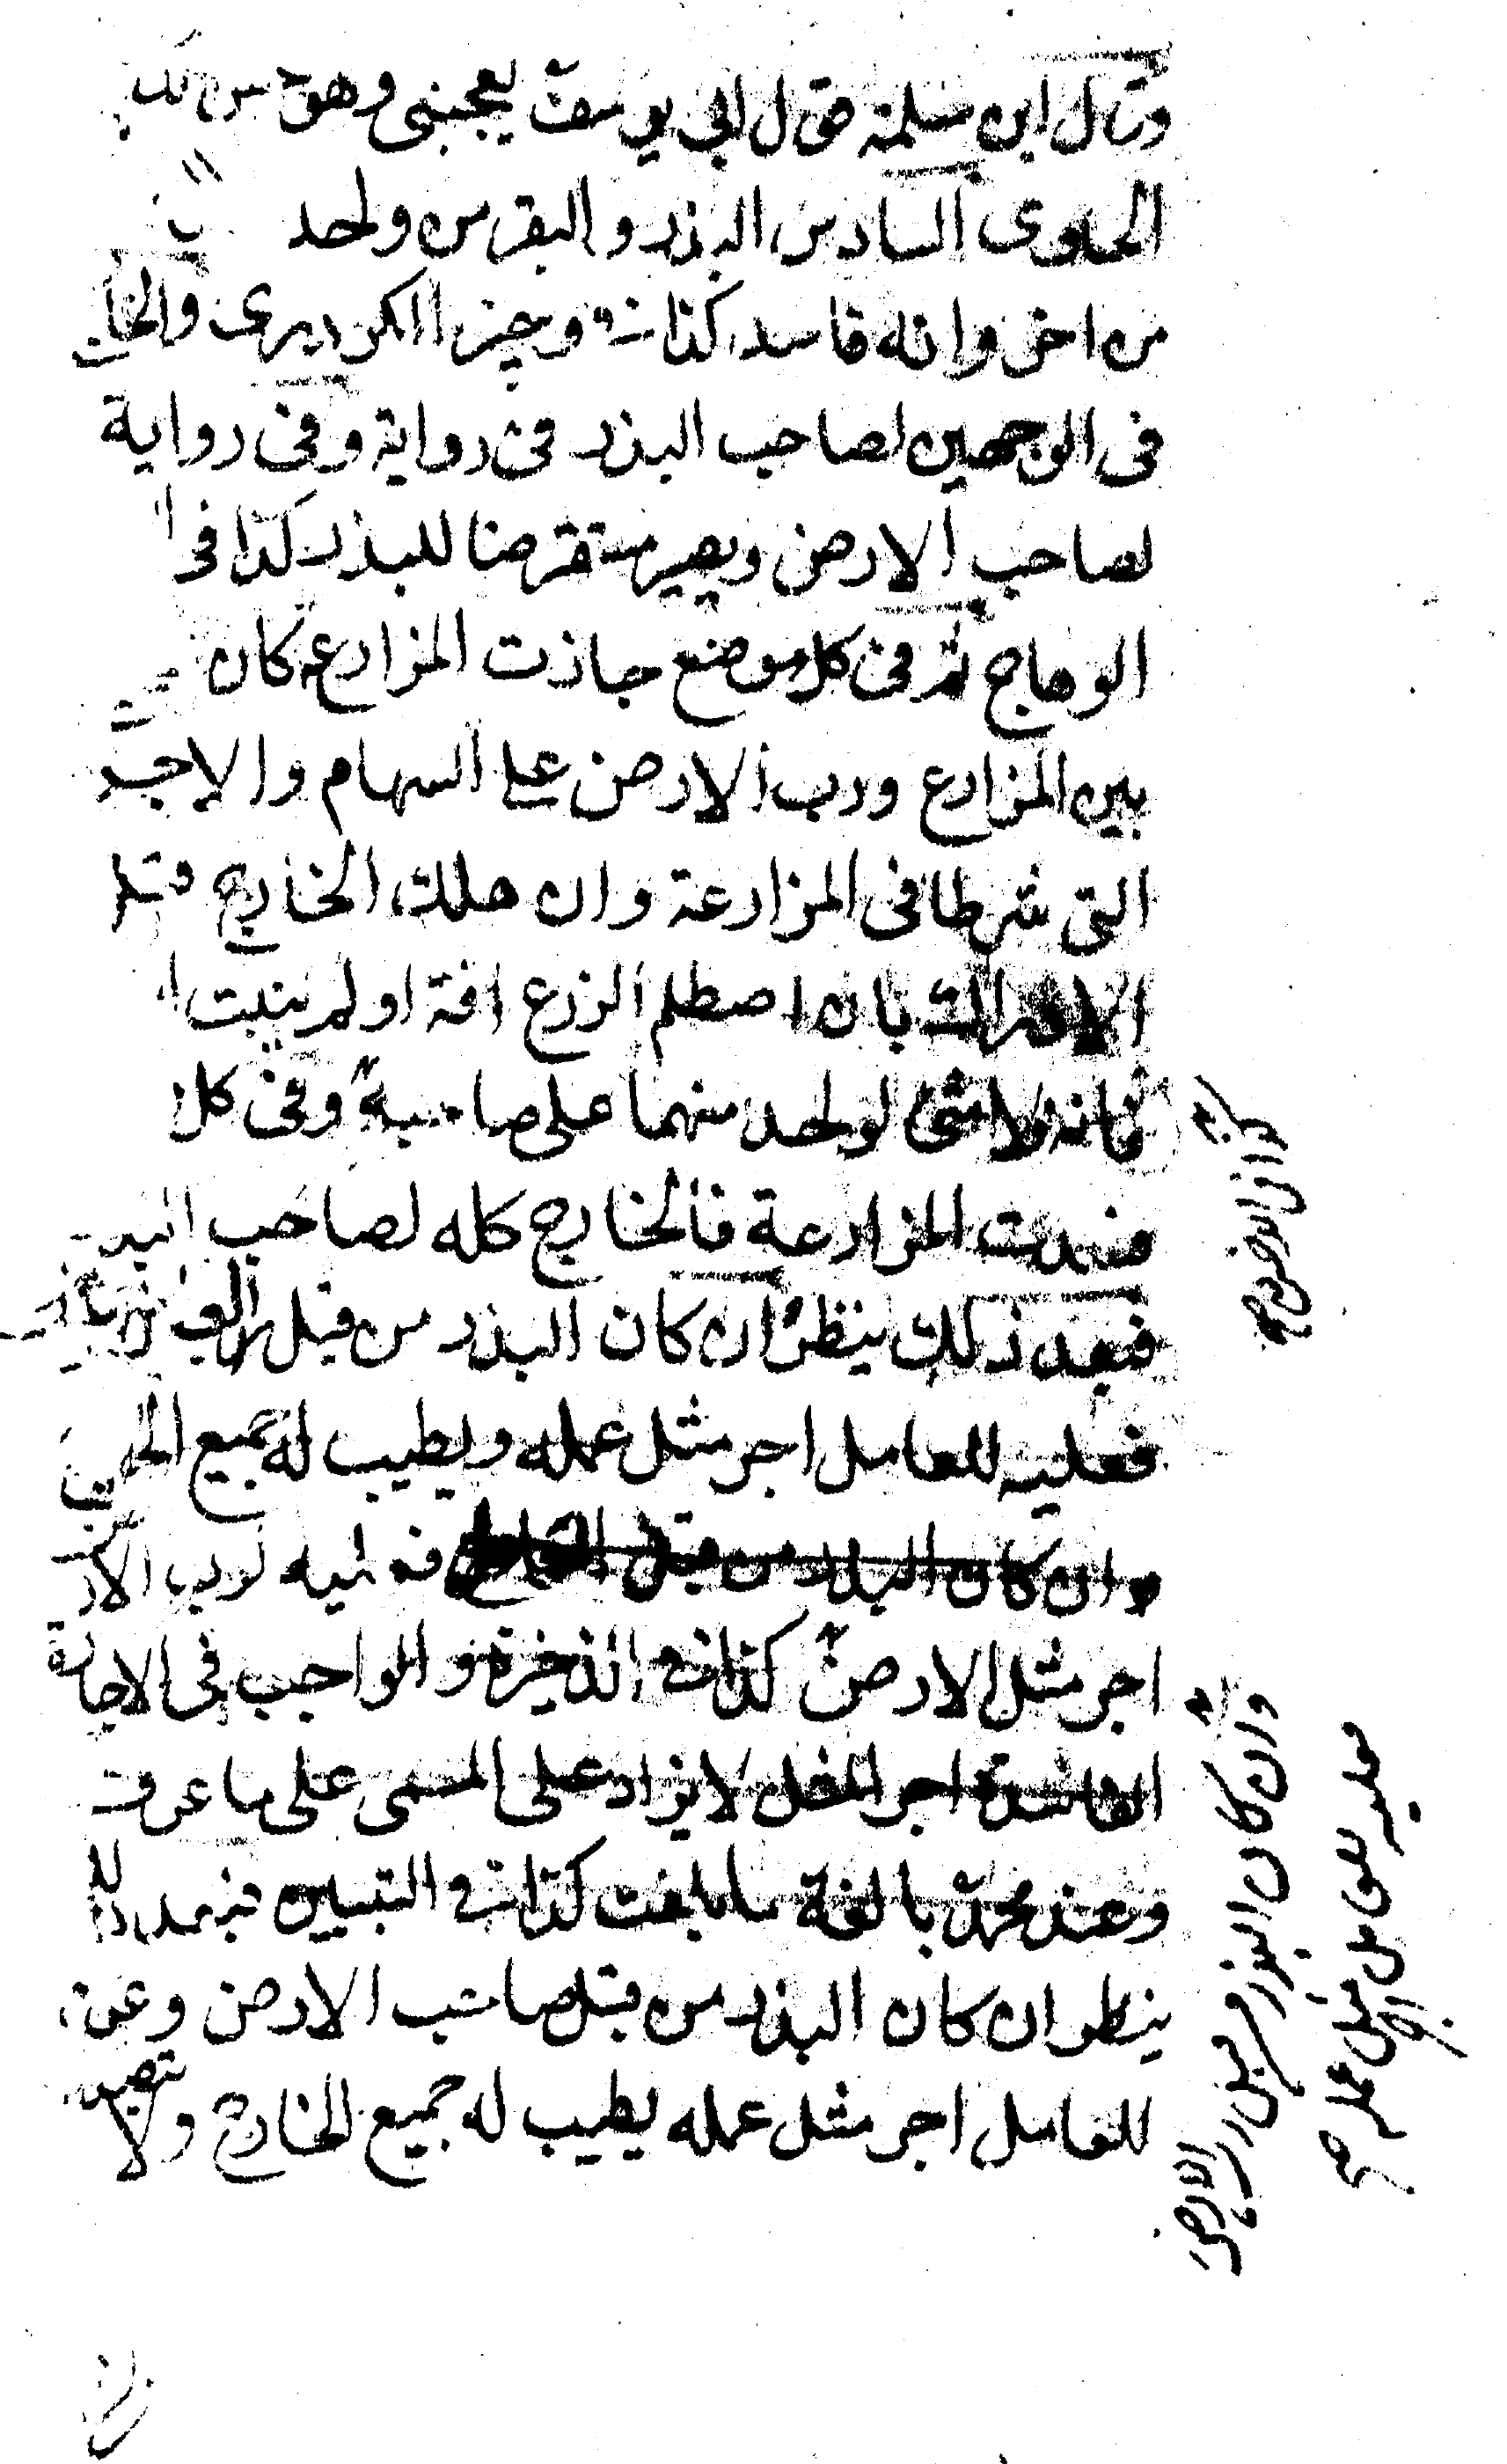 وقال ابن سلمة قول ابي يوسف يعجبنى وهو
الحاوى السادس البذر والبقر من ولحد
من اخر وانه فاسد كذا في وجيز الكردرى والخا
فى الوجهين لصاحب البذر فى رواية وفى رواية
لصاحب الارض ويصير مستقرضا للبذر كذا فى
الوهاج ثم فى كل موضع جازت المزارعة كان
بين المزارع ورب الارض على السهام والاجر
التى شرطا فى المزارعة وان هلك الخارج قبل
الادراك بان اصطلم الزرع افة او لم ينبت
فانه لا شئ لولحد منهما على صاحبه وفى كل
فسدت المزارعة فالخارج كله لصاحب البذر
فبعد ذلك ينظر ان كان البذر من قبل
فعليه للعامل اجر مثل عمله ويطيب له جميع
وان كان البذر من قبل فعليه لرب الار
اجر مثل الارض كذا في الذخيرة والواجب فى الاجارة
الفاسدة اجر المثل لا يزاد على المسمى على ما عرف
وعند محمد بالغة ما بلغت كذا في التبيين فبعد ذلك
ينظر ان كان البذر من قبل صاحب الارض وغرم
للعامل اجر مثل عمله يطيب له جميع الخارج ولا
وان كان البذر من قبل رب الارض